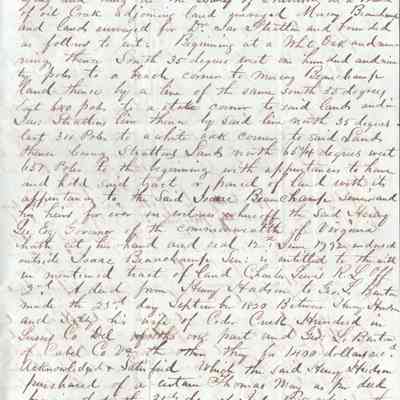 of oil Creek adjoining land surveyed Maccy Beauchamp
and Land surveyed for Dr. Jas Stratton and bounded
as follows to wit: Beginning at a White Oak and run
ning thence South 35 degrees west one hundred and nine
ty poles to a beach corner to Maccy Beauchamp
land thence by a line of the same South 55 degrees
east 640 poles to a stake corner to said lands and in
Jas. Strattons line thence by said line north 35 degrees
east 310 Poles to a white oak corner to said Lands
thence leaving Strattons Lands north 65¾ degrees west
657 Poles to the beginning with appurtances to have
and hold said tract or parcel of land with its
appurtances to the said Isaac Beauchamp Senior and
his heirs for ever in witness whereoff the Said Henry
Lee Esq. Governor of the commonwealth of Virginia
hath set his hand and seal 12th June 1792 endorsed
outside Isaac Beauchamp Sen: is entitled to the with
in mentioned tract of land Charles Lewis R. L. Off
3rd A deed from Henry Hudson to Geo. L. Barton
made the 23rd day September 1820 Between Henry Hudson
and his wife of Ceder Creek Hundred in
Sussex Co Del of the one part and Geo. L. Barton
of Cabel Co Va of the other part for 1400 dollars
acknowledged & Satisfied Which the said Henry Hudson
purchased of a certain Thomas May as pr deed